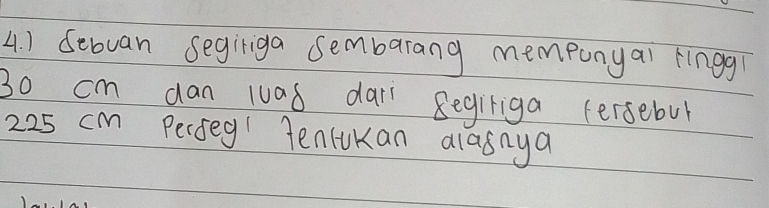 4.) Sebuah segitiga sembarang mempunyai tinggi
30 cm dan luas dari segitiga tersebut
225 cm Persegi tentukan alasnya